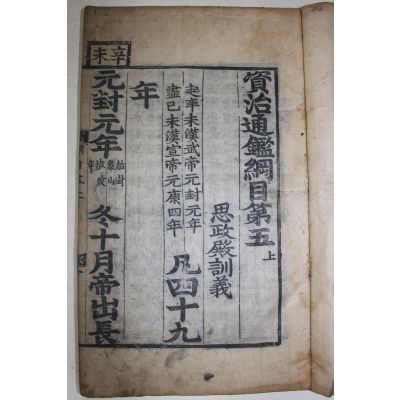 資治通鑑綱目第五上
思政殿訓義
起辛未漢武帝元封元年
盡己未漢宣帝元康四年
凡四十九
年
辛未
元封元年
冬十月帝出長